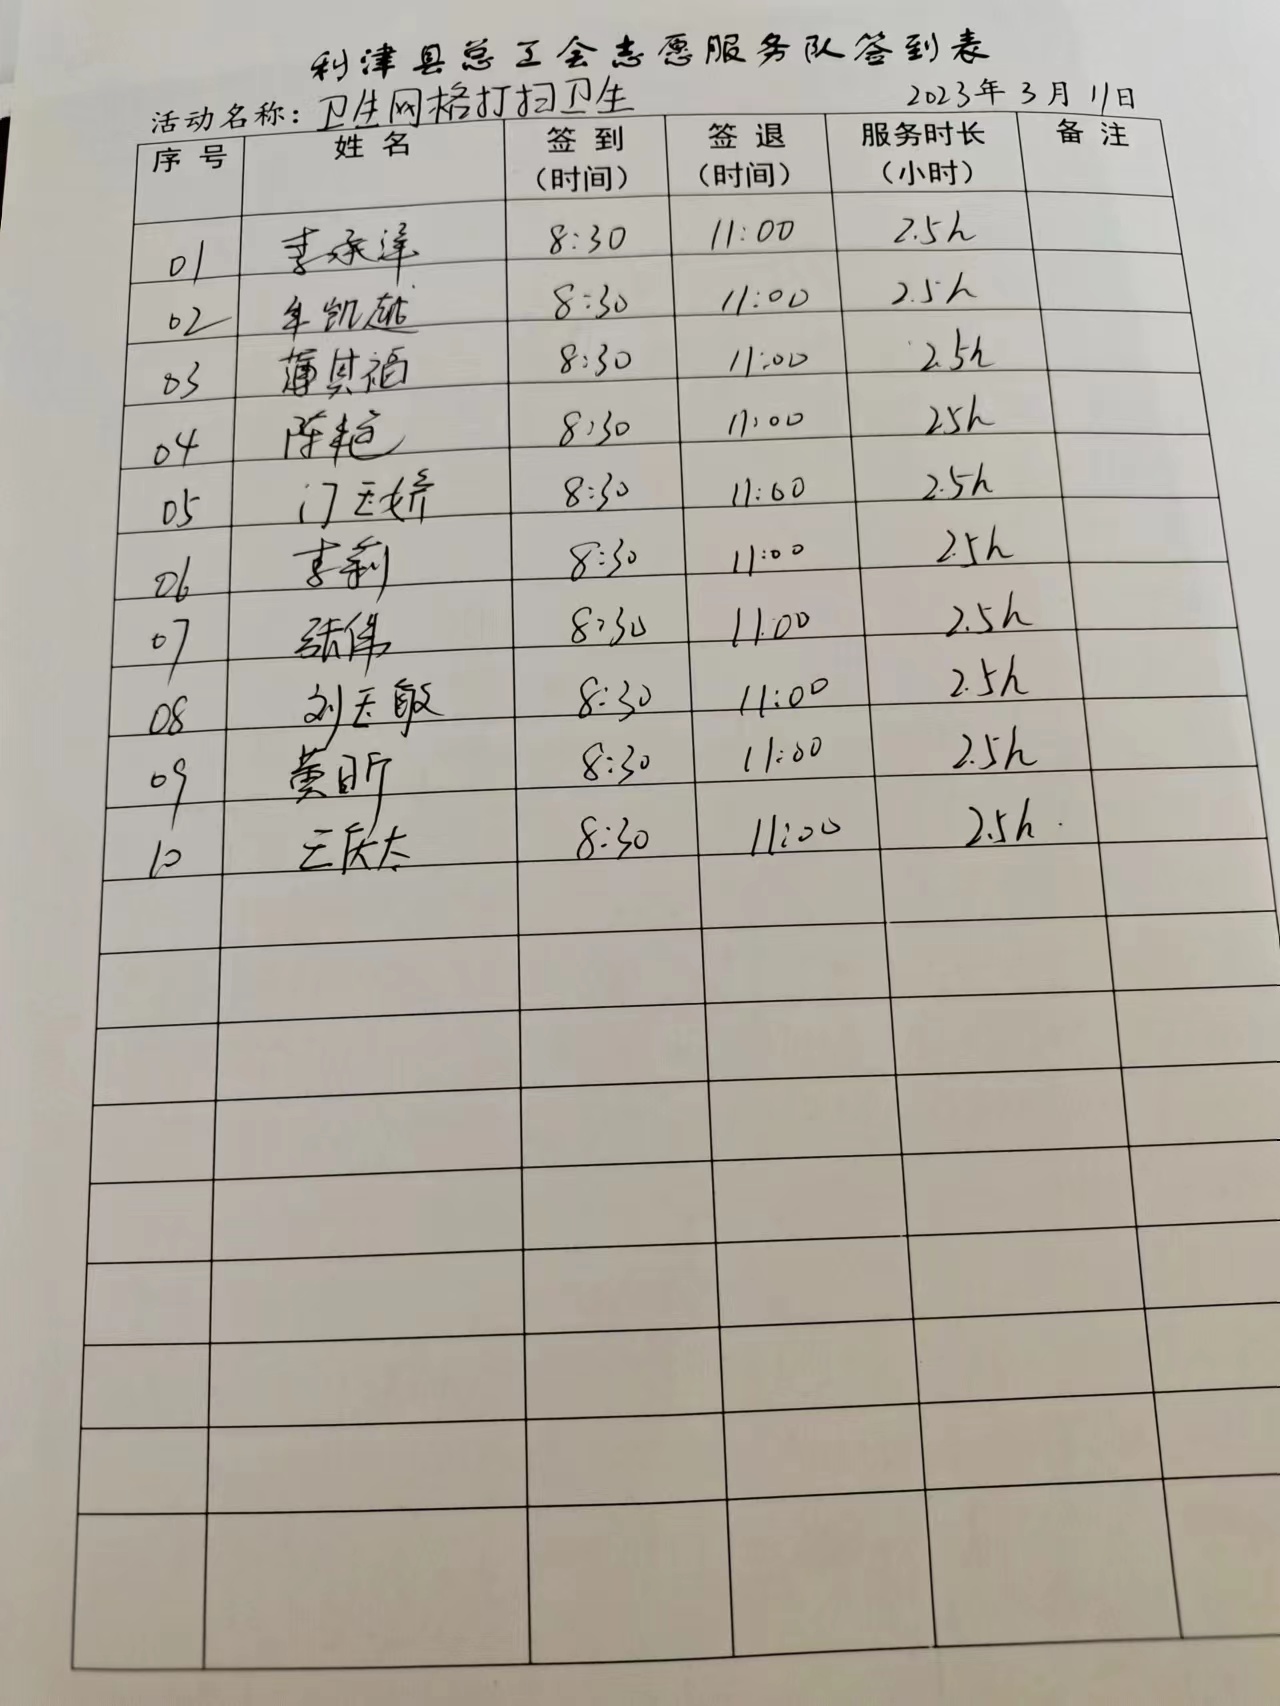 利津县总工会志愿服务队签到表
活动名称：卫生网格打扫卫生 2023年3月11日
序号 姓名 签到（时间） 签退（时间） 服务时长（小时） 备注
01 李承泽 8:30 11:00 2.5h
02 牟凯越 8:30 11:00 2.5h
03 薄其福 8:30 11:00 2.5h
04 陈艳 8:30 11:00 25h
05 门玉娇 8:30 11:00 2.5h
06 李莉 8:30 11:00 2.5h
07 张伟 8:30 11:00 2.5h
08 刘玉敏 8:30 11:00 2.5h
09 黄昕 8:30 11:00 2.5h
10 8:30 11:00 2.5h